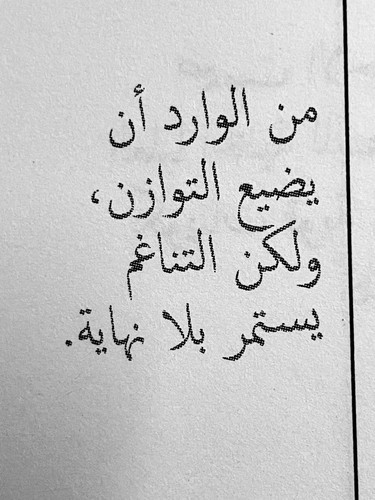 من الوارد أن
يضيع التوازن،
ولكن التناغم
يستمر بلا نهاية.